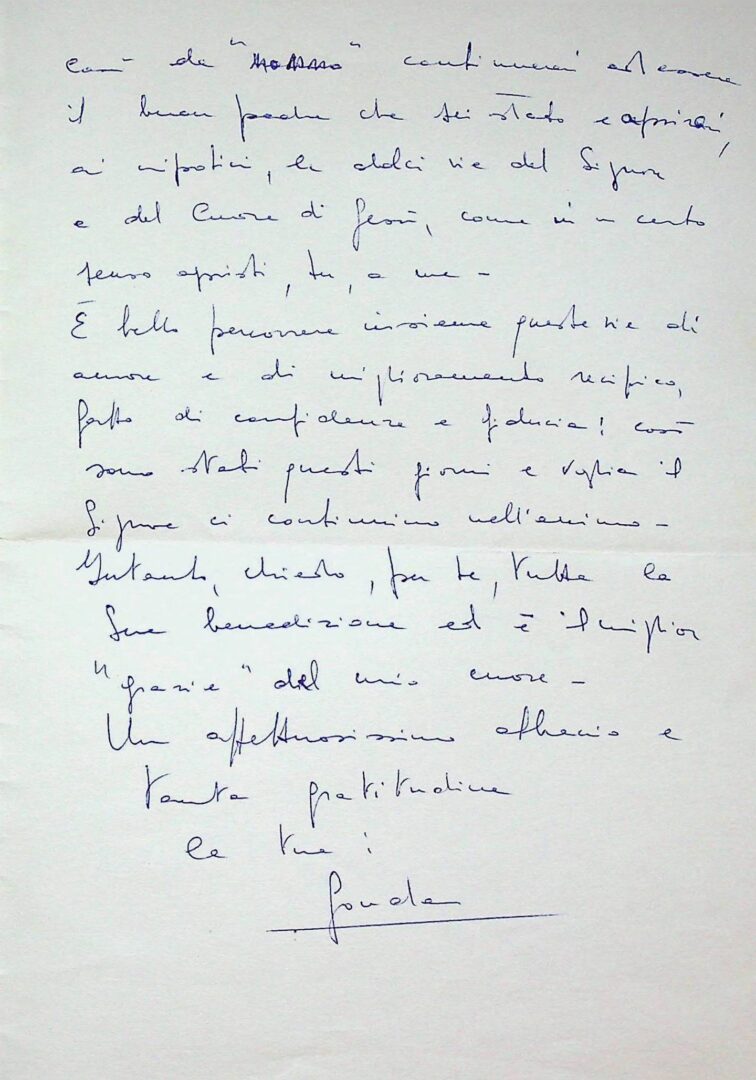 Così da "nonno" continuerai ad essere
il buon padre che sei stato e aprirai,
ai nipotini, le dolci vie del Signore
e del Cuore di Gesù, come in un certo
senso apristi, tu, a me -
È bello percorrere insieme queste vie di
amore e di miglioramento reciproco,
fatto di confidenza e fiducia! così
sono stati questi giorni e voglia il
Signore ci continuino nell'animo -
Intanto, chiedo, per te, tutta la
Sua benedizione ed è il miglior
"grazie" del mio cuore -
Un affettuosissimo abbraccio e
tanta gratitudine
la tua: